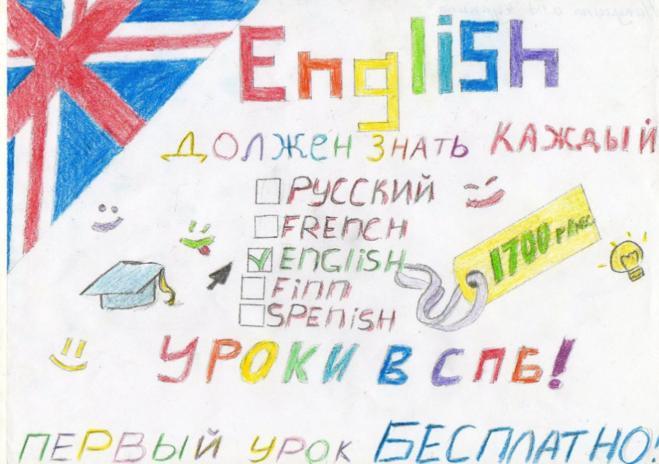 English
ДОЛЖЕН ЗНАТЬ КАЖДЫЙ
РУССКИЙ
FRENCH
ENGLISH
FINN
SPENISH
1700 р/мес
УРОКИ В СПБ!
ПЕРВЫЙ УРОК БЕСПЛАТНО!